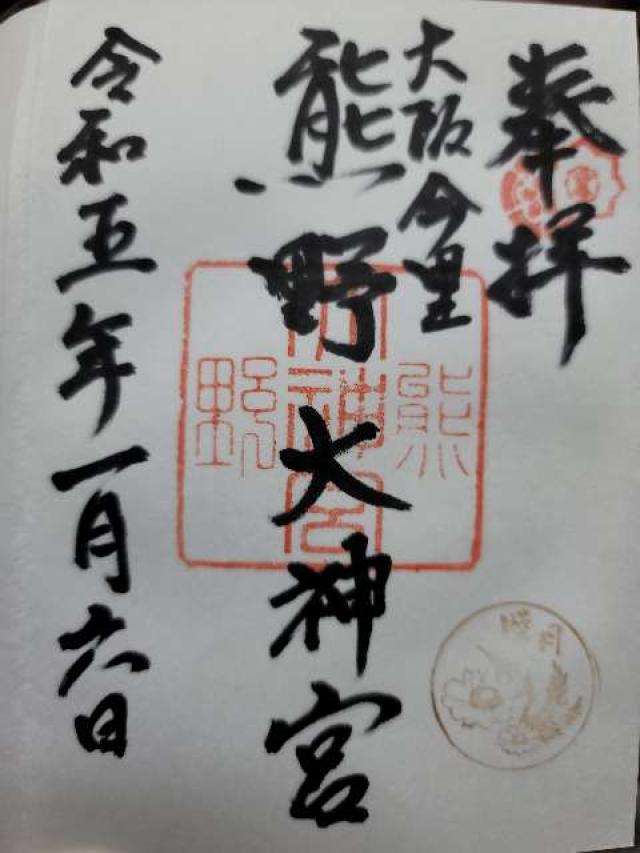 奉拝
大阪今里
熊野大神宮
令和五年一月六日
熊
大神宮
野
睦月